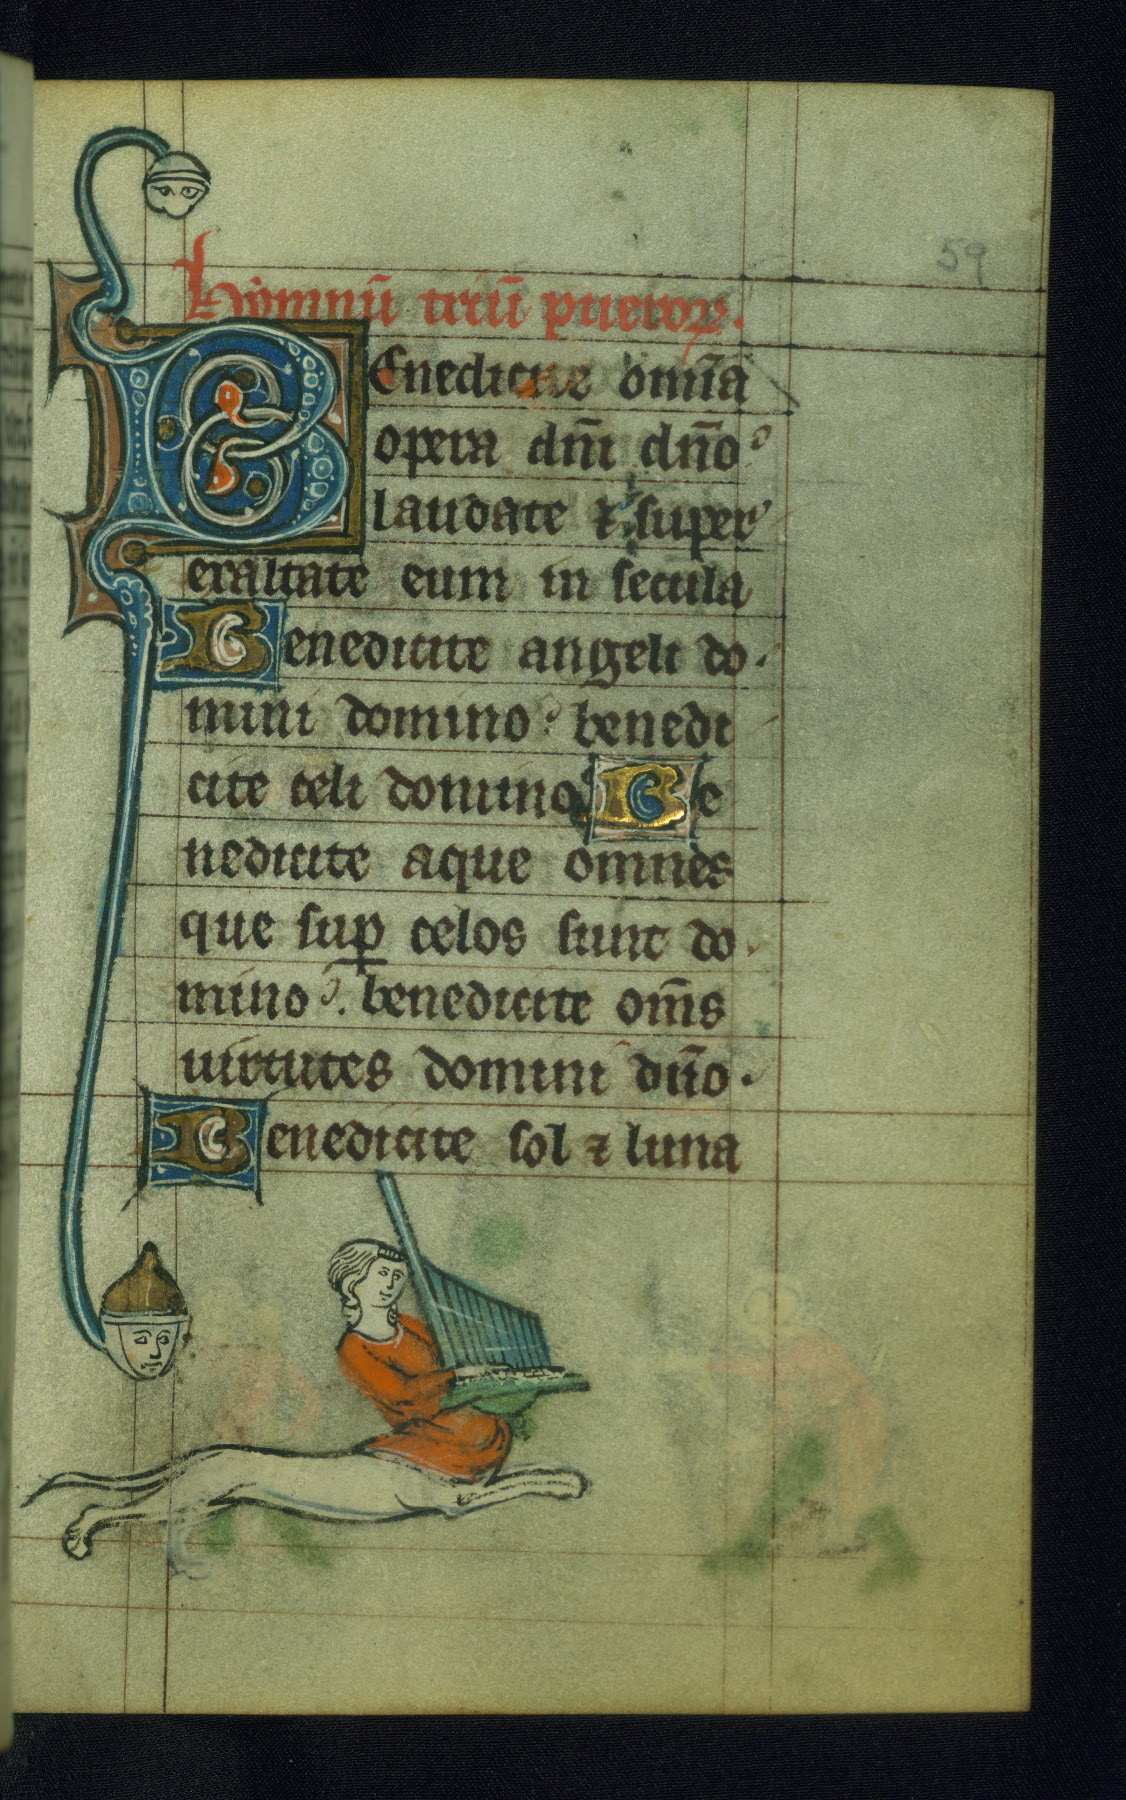 59
hỳmnū triū pueroꝝ.
BEnedicite om̄ia
opera dn̄i dn̄o
laudate ⁊ super
exaltate eum in secula
Benedicite angeli do
mini domino: benedi
cite celi domino Be
nedicite aque omnes
que suꝑ celos sunt do
mino. benedicite om̄s
uirtutes domini dn̄o.
Benedicite sol ⁊ luna